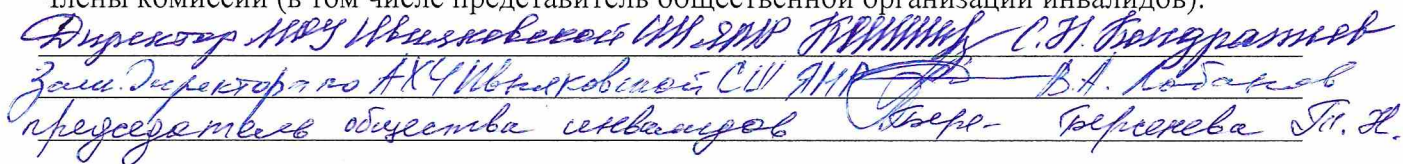 члены комиссии (в том числе представитель общественной организации инвалидов):
Директор МОУ Ивняковской СШ ЯМР С.Н. Кондратьев
Зам. Директора по АХЧ Ивняковской СШ ЯМР В.А. Лобанов
председатель общества инвалидов Берсенева Т. Н.